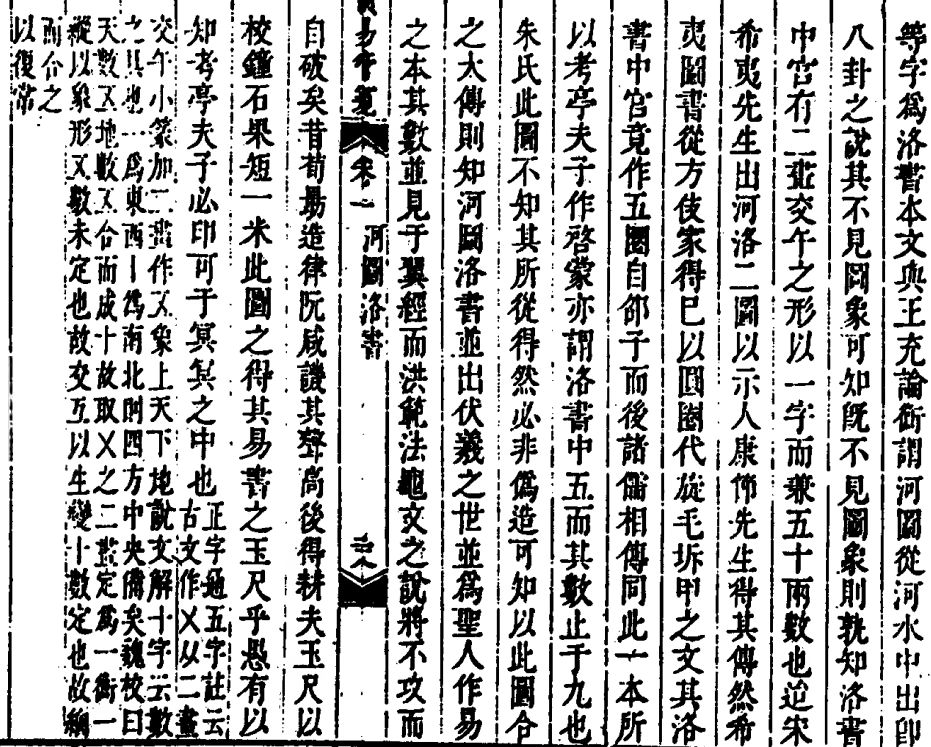 等字為洛書本文與王充論衡謂河圖從河水中出卽
八卦之說其不見圖象可知旣不見圖象則孰知洛書
中宮有二畫交午之形以一字而兼五十兩數也迨宋
希夷先生出河洛二圖以示人康節先生得其傳然希
夷圖書從方伎家得已以圓圈代旋毛坼甲之文其洛
書中宮竟作五圈自邵子而後諸儒相傳同此一本所
以考亭夫子作啓蒙亦謂洛書中五而其數止于九也
朱氏此圖不知其所從得然必非偽造可知以此圖合
之大傳則知河圖洛書並出伏羲之世並為聖人作易
之本其數並見于翼經而洪範法龜文之說將不攻而
河圖洛書
自破矣昔荀勗造律阮咸譏其聲高後得耕夫玉尺以
校鐘石果短一米此圖之得其易書之玉尺乎愚有以
知考亭夫子必印可于冥冥之中也
正字通五字註云
古文作㐅从二畫
交午小篆加二畫作五象上天下地說文解十字云數
之具也一為東西丨為南北則四方中央備矣魏校曰
天數五地數五合而成十故取㐅之二畫定為一衡一
縱以象形五數未定也故交互以生變十數定也故縱
而合之
以復常